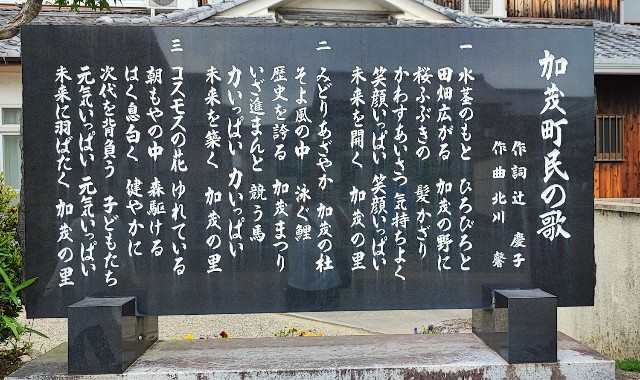 加茂町民の歌
作詞 辻 慶子
作曲 北川 馨
一 水茎のもと ひろびろと
田畑広がる 加茂の野に
桜ふぶきの 髪かざり
かわすあいさつ 気持ちよく
笑顔いっぱい 笑顔いっぱい
未来を開く 加茂の里
二 みどりあざやか 加茂の杜
そよ風の中 泳ぐ鯉
歴史を誇る 加茂まつり
いざ進まんと 競う馬
力いっぱい 力いっぱい
未来を築く 加茂の里
三 コスモスの花 ゆれている
朝もやの中 森駆ける
はく息白く 健やかに
次代を背負う 子どもたち
元気いっぱい 元気いっぱい
未来に羽ばたく 加茂の里